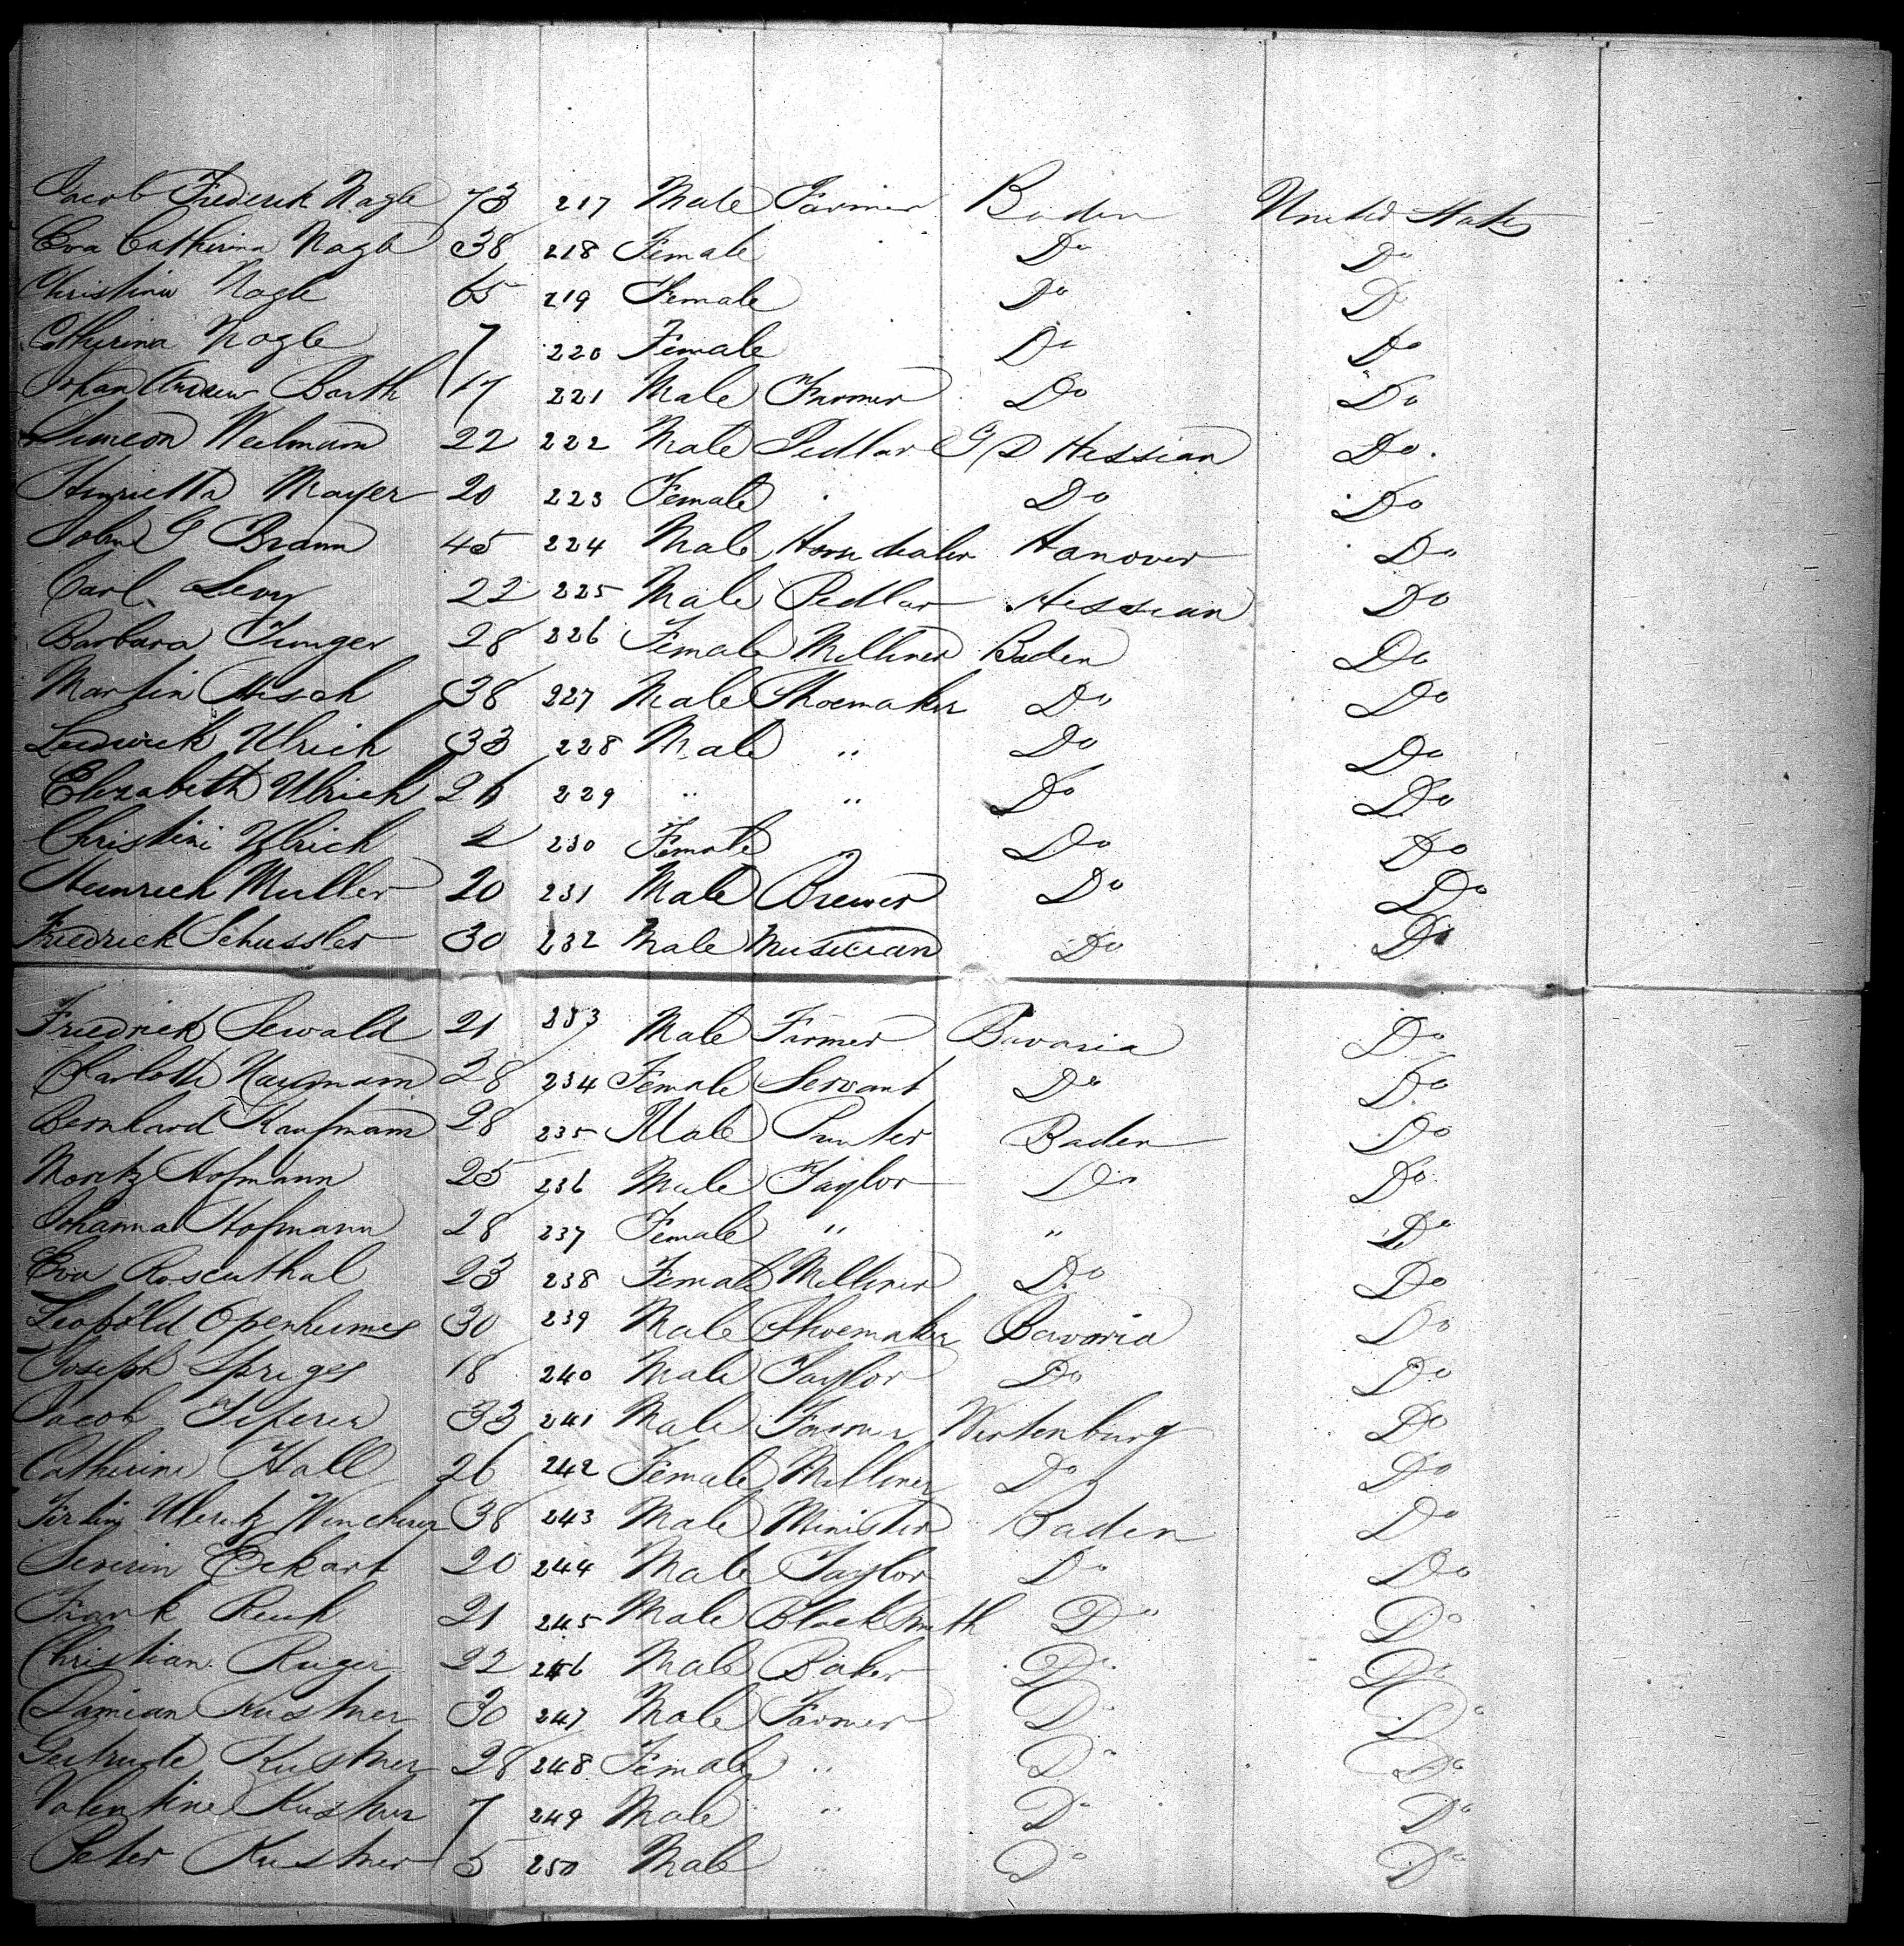 Jacob Frederik Nagle 73 217 Male Farmer Baden United States
Eva Catherina Nagle 38 218 Female Do Do
Christina Nagle 65 219 Female Do Do
Catherina Nagle 7 220 Female Do Do
Johan Andrew Barth 17 221 Male Farmer Do Do
Simeon Weilmann 22 222 Male Pedlar G D Hessian Do
Henrietta Mayer 20 223 Female Do Do
John G Braun 45 224 Male Horse dealer Hanover Do
Carl Levy 22 225 Male Pedlar Hessian Do
Barbara Junger 28 226 Female Milliner Baden Do
Martin Hisch 38 227 Male Shoemaker Do Do
Ludwick Ulrich 33 228 Male " Do Do
Elizabeth Ulrich 26 229 " " Do Do
Christini Ulrich 2 230 Female " Do Do
Heinrich Muller 20 231 Male Brewer Do Do
Friedrick Schussler 30 232 Male Musician Do Do
Friedrick Sewald 21 233 Male Farmer Bavaria Do
Charlotte Naumann 28 234 Female Servant Do Do
Bernhard Kaufmann 28 235 Male Printer Baden Do
Moritz Hofmann 25 236 Male Taylor Do Do
Johanna Hofmann 28 237 Female " " Do
Eva Rosenthal 23 238 Female Milliner Do Do
Leopold Openheimer 30 239 Male Shoemaker Bavaria Do
Joseph 18 240 Male Taylor Do Do
Jacob 33 241 Male Farmer Wirtenburg Do
Catherine Hall 26 242 Female Milliner Do Do
38 243 Male Minister Baden Do
Severin Eckart 20 244 Male Taylor Do Do
Frank 21 245 Male BlackSmith Do Do
Christian Ruger 22 246 Male Baker Do Do
Damian Kustner 30 247 Male Farmer Do Do
Gertrude Kustner 28 248 Female " Do Do
Valentine Kustner 7 249 Male " Do Do
Peter Kustner 5 250 Male " Do Do